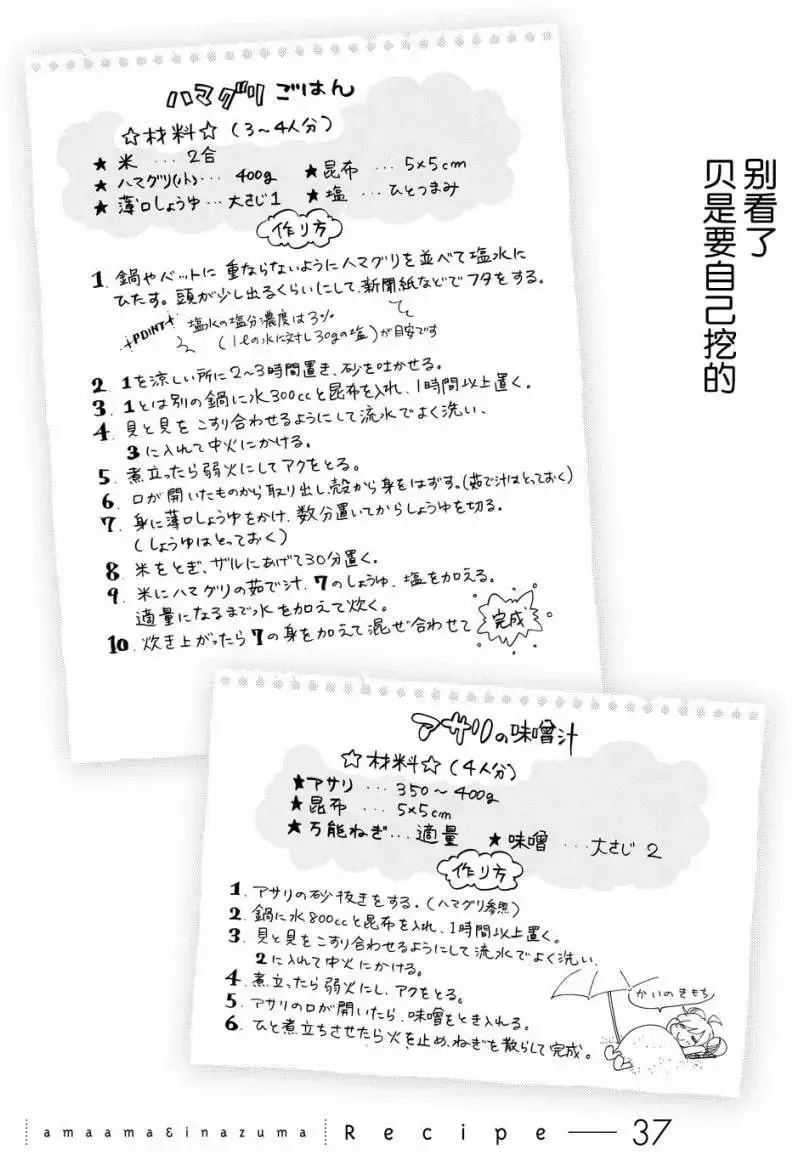 别看了
贝是要自己挖的
ハマグリごはん
☆材料☆(3~4人分)
★米…2合
★ハマグリ(小)…400g
★薄口しょうゆ…大さじ1
★昆布…5×5cm
★塩…ひとつまみ
作り方
1. 鍋やバットに重ならないようにハマグリを並べて塩水に
ひたす。頭が少し出るくらいにして、新聞紙などでフタをする。
POINT 塩水の塩分濃度は3%
(1ℓの水に対し30gの塩)が目安です
2. 1を涼しい所に2~3時間置き、砂を吐かせる。
3. 1とは別の鍋に水300ccと昆布を入れ、1時間以上置く。
4. 貝と貝をこすり合わせるようにして流水でよく洗い、
3に入れて中火にかける。
5. 煮立ったら弱火にしてアクをとる。
6. 口が開いたものから取り出し、殻から身をはずす。(茹で汁はとっておく)
7. 身に薄口しょうゆをかけ、数分置いてからしょうゆを切る。
(しょうゆはとっておく)
8. 米をとぎ、ザルにあげて30分置く。
9. 米にハマグリの茹で汁、7のしょうゆ、塩を加える。
適量になるまで水を加えて炊く。
10. 炊き上がったら7の身を加えて混ぜ合わせて
完成
アサリの味噌汁
☆材料☆(4人分)
★アサリ…350~400g
★昆布…5×5cm
★万能ねぎ…適量
★味噌…大さじ2
作り方
1. アサリの砂抜きをする。(ハマグリ参照)
2. 鍋に水800ccと昆布を入れ、1時間以上置く。
3. 貝と貝をこすり合わせるようにして流水でよく洗い、
2に入れて中火にかける。
4. 煮立ったら弱火にし、アクをとる。
5. アサリの口が開いたら、味噌をとき入れる。
6. ひと煮立ちさせたら火を止め、ねぎを散らして完成。
かいのきもち
amaama&inazuma Recipe — 37